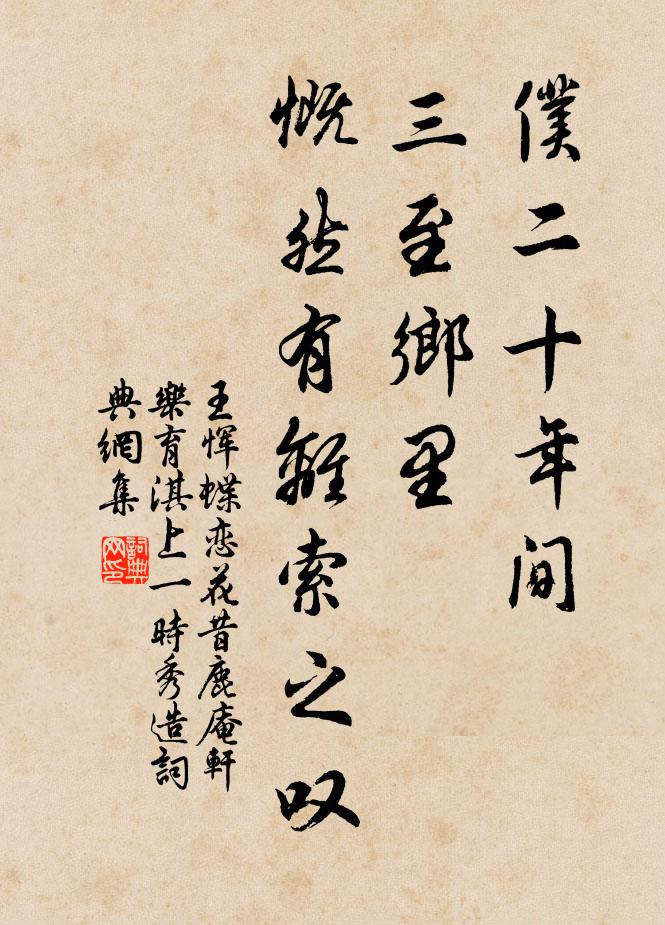 僕二十年間
三至鄉里
慨然有離索之叹
王恽蝶恋花昔鹿庵軒
樂育淇上一時秀造詞
典網集
詞典网印